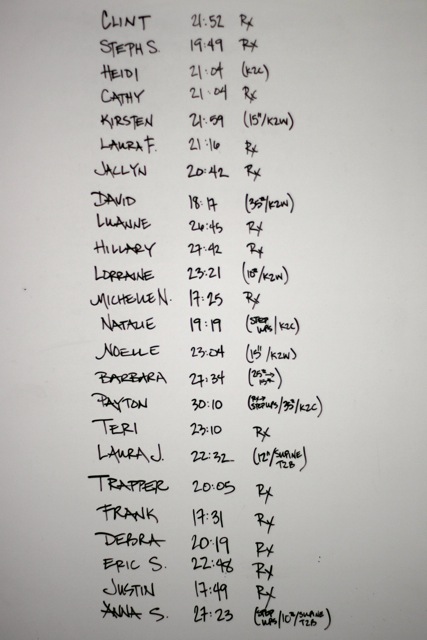 CLINT 21:52 Rx
STEPH S. 19:49 Rx
HEIDI 21:04 (K2C)
CATHY 21:04 Rx
KIRSTEN 21:59 (15"/K2W)
LAURA F. 21:16 Rx
JACLYN 20:42 Rx
DAVID 18:17 (35#/K2W)
LUANNE 26:45 Rx
HILLARY 27:42 Rx
LORRAINE 23:21 (10#/K2W)
MICHELLE N. 17:25 Rx
NATALIE 19:19 (STEP UPS/K2C)
NOELLE 23:04 (15"/K2W)
BARBARA 27:34 (25#→15#)
PAYTON 30:10 (Rx→STEP UPS/35#/K2C)
TERI 23:10 Rx
LAURA J. 22:32 (12"/SUPINE T2B)
TRAPPER 20:05 Rx
FRANK 17:31 Rx
DEBRA 20:19 Rx
ERIC S. 22:48 Rx
JUSTIN 17:49 Rx
ANNA S. 27:23 (STEP UPS/10#/SUPINE T2B)